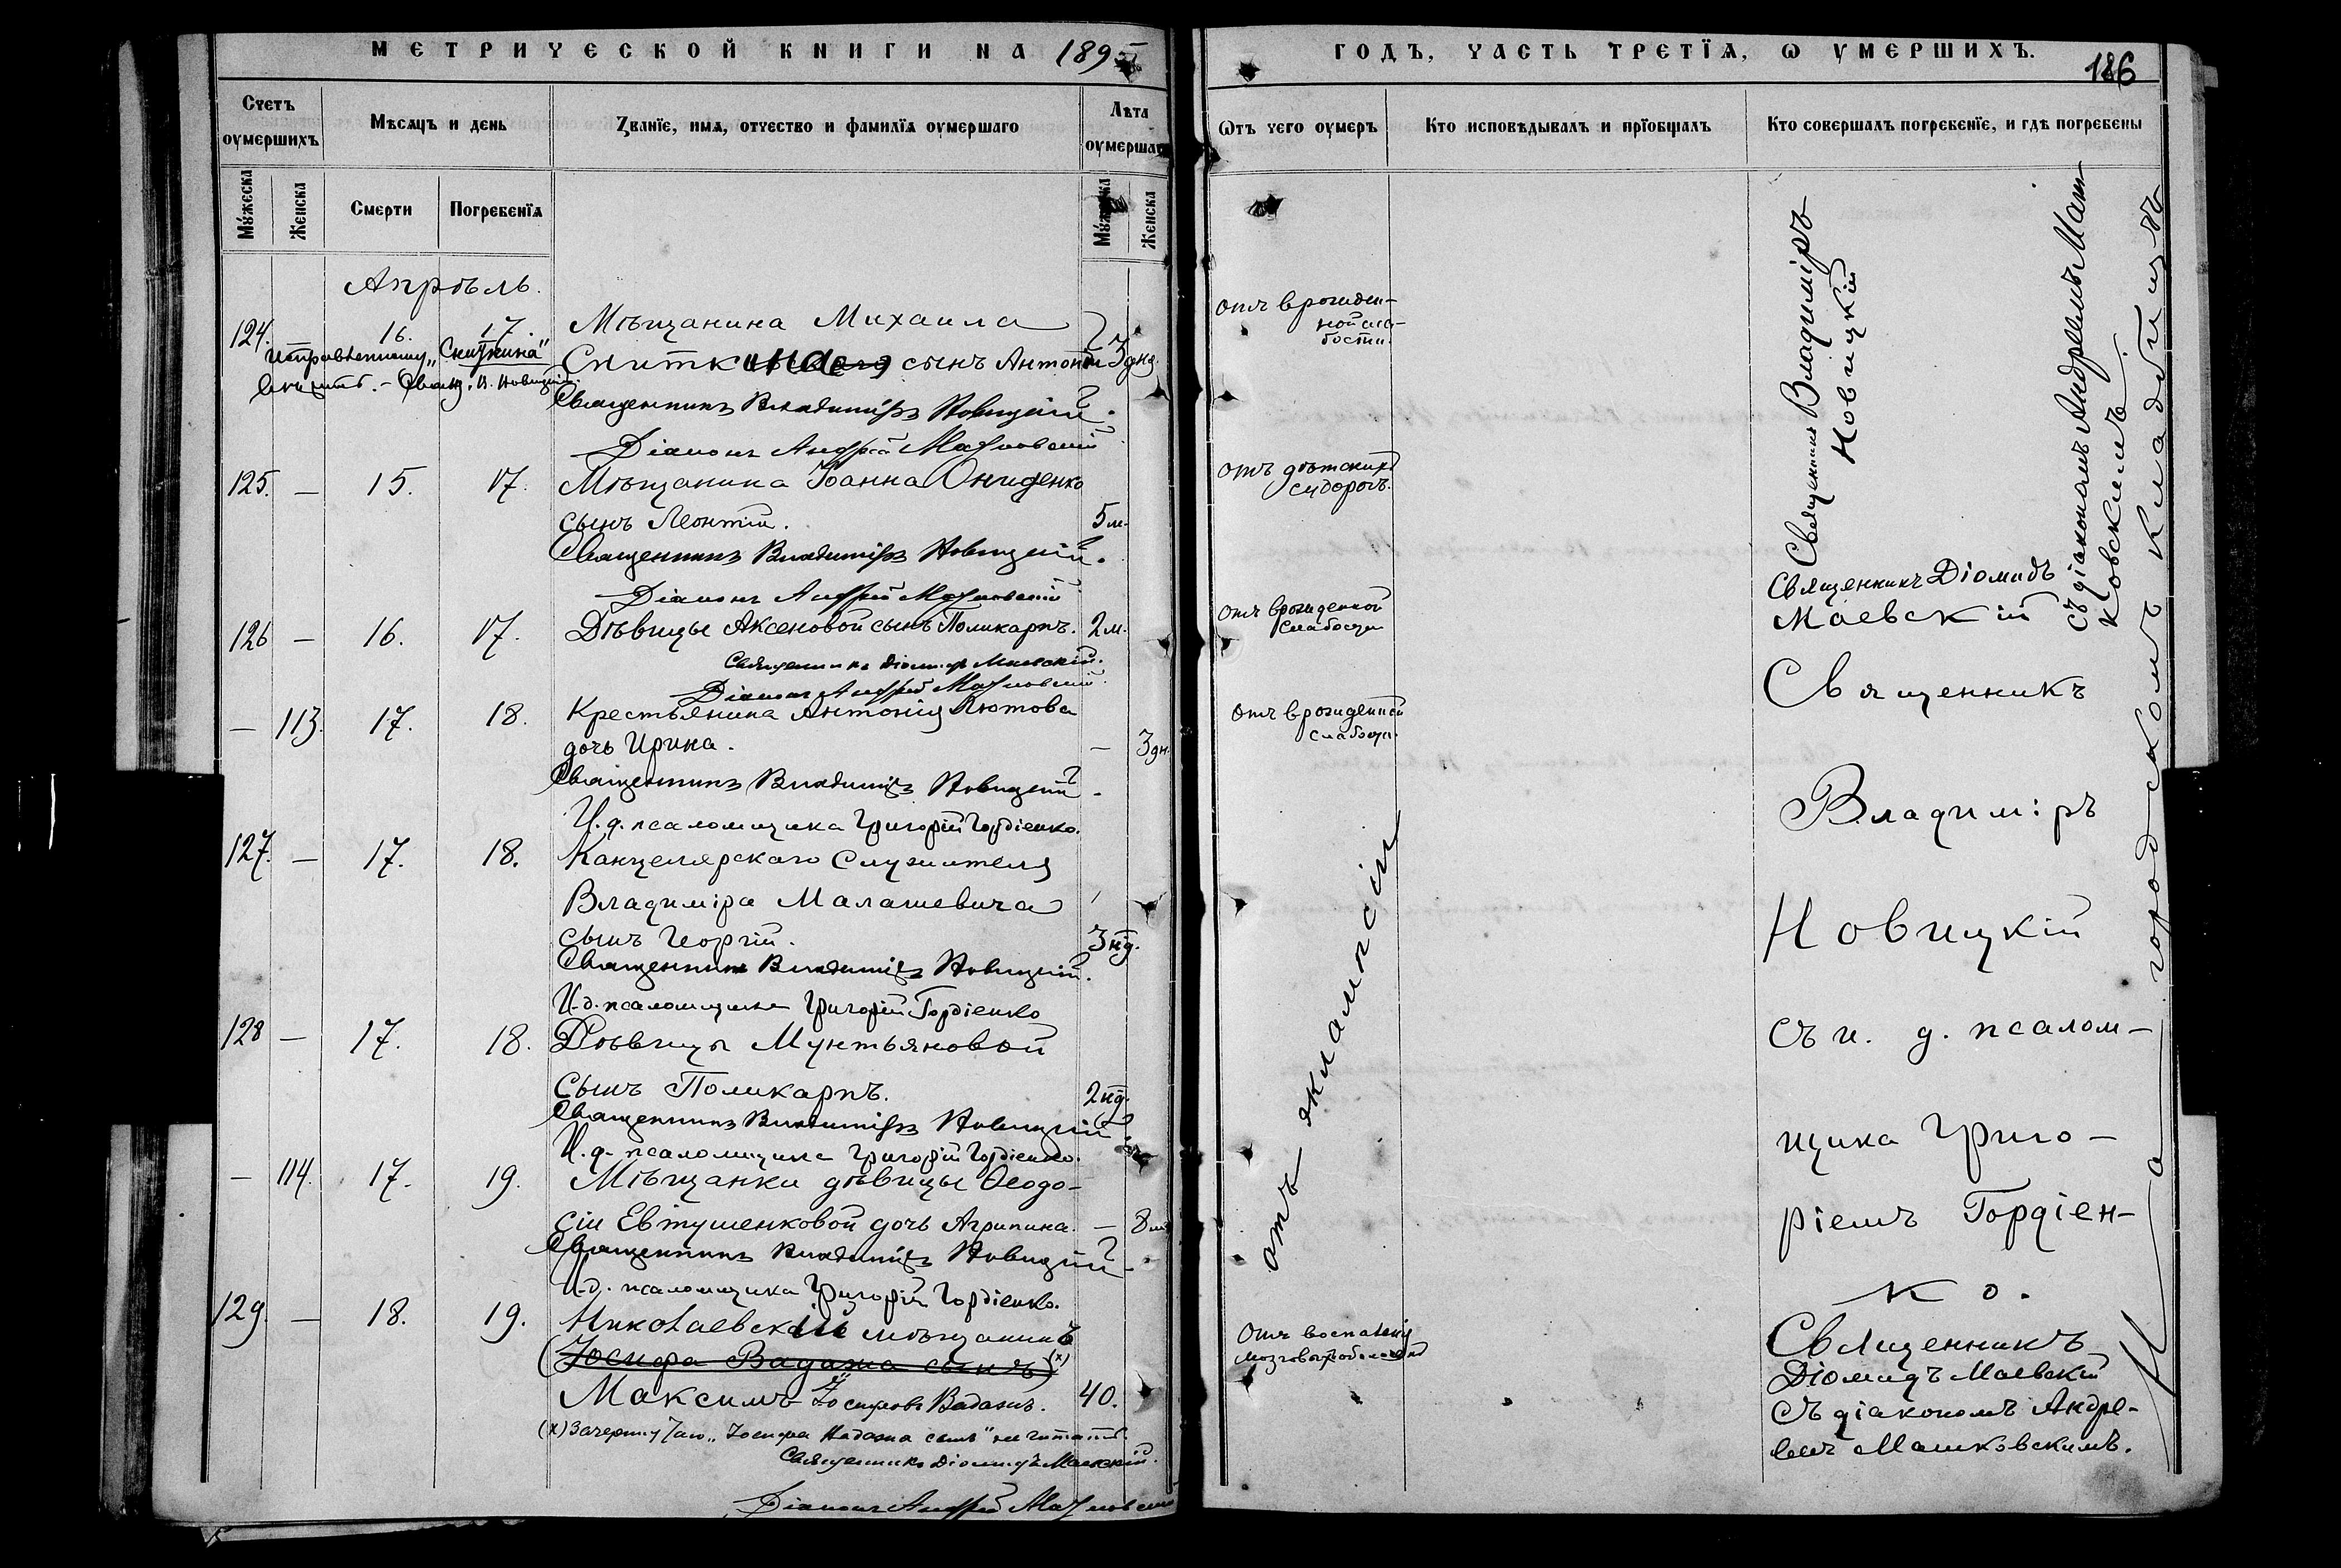 МЕТРИЧЕСКОЙ КНИГИ НА 1895
ГОДЪ, ЧАСТЬ ТРЕТІѦ, Ѡ УМЕРШИХЪ.
186
Счетъ оумершихъ
Мѣсѧцъ и день
Званїе, имѧ, отчество и фамилїѧ оумершаго
Лѣта оумершаго
Мꙋжеска
Женска
Смерти
Погребенїѧ
Мꙋжеска
Женска
Ѿтъ чего оумеръ
Кто исповѣдывалъ и прїобщалъ
Кто совершалъ погребенїе, и гдѣ погребены
Апрѣль.
124. 16. 17. Мѣщанина Михаила
Исправленному „Снѣткина"
вѣрить. – Свящ. В. Новицкій
сынъ Антоній 3 дня.
Священникъ Владиміръ Новицкій.
Діаконъ Андрей Машковскій
отъ врожден-
ной сла-
бости.
125. — 15. 17. Мѣщанина Іоанна Онищенко
сынъ Леонтій. 5 м.
Священникъ Владиміръ Новицкій.
Діаконъ Андрей Машковскій
отъ дѣтскихъ
судорогъ.
Священникъ Владиміръ
Новицкій
съ діакономъ Андреемъ Маш-
ковскимъ.
126 — 16. 17. Дѣвицы Аксеновой сынъ Поликарпъ. 2 м.
Священникъ Діомидъ Маевскій.
Діаконъ Андрей Машковскій.
отъ врожденной
слабости
Священникъ Діомидъ
Маевскій
— 113. 17. 18. Крестьянина Антонія Лютова
дочь Ирина. — 3 дн.
Священникъ Владиміръ Новицкій.
И. д. псаломщика Григорій Гордіенко.
отъ врожденной
слабости.
127. — 17. 18. Канцелярскаго Служителя
Владиміра Малашевича
сынъ Георгій. 3 нд.
Священникъ Владиміръ Новицкій.
И. д. псаломщика Григорій Гордіенко
128 — 17. 18. Дѣвицы Мунтьяновой
Сынъ Поликарпъ. 2 нд.
Священникъ Владиміръ Новицкій
И. д. псаломщика Григорій Гордіенко.
— 114. 17. 19. Мѣщанки дѣвицы Ѳеодо-
сіи Евтушенковой дочь Агрипина. — 8 м
Священникъ Владиміръ Новицкій.
И. д. псаломщика Григорій Гордіенко.
отъ эклампсіи
Священникъ
Владиміръ
Новицкій
съ и. д. псалом-
щика Григо-
ріемъ Гордіен-
ко.
129. — 18. 19. Николаевскій мѣщанинъ
(Іосифа Вадажа сынъ) (х)
Максимъ Іосифовъ Вадажъ. 40.
(х) Зачеркнутаго „Іосифа Вадажа сынъ" не читать.
Священникъ Діомидъ Маевскій.
Діаконъ Андрей Машковскій
Отъ воспаленія
мозговыхъ оболочекъ
Священникъ
Діомидъ Маевскій
съ діакономъ Андре-
емъ Машковскимъ.
На городскомъ кладбищѣ